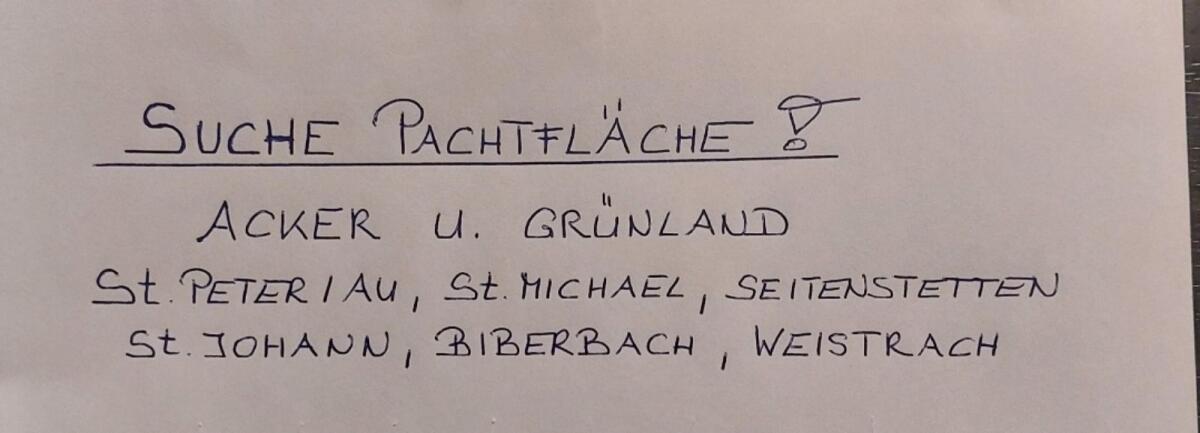 SUCHE PACHTFLÄCHE!
ACKER U. GRÜNLAND
St. PETER/AU, St. MICHAEL, SEITENSTETTEN
St. JOHANN, BIBERBACH, WEISTRACH